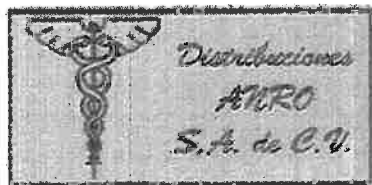 Distribuciones
ANRO
S.A. de C.V.